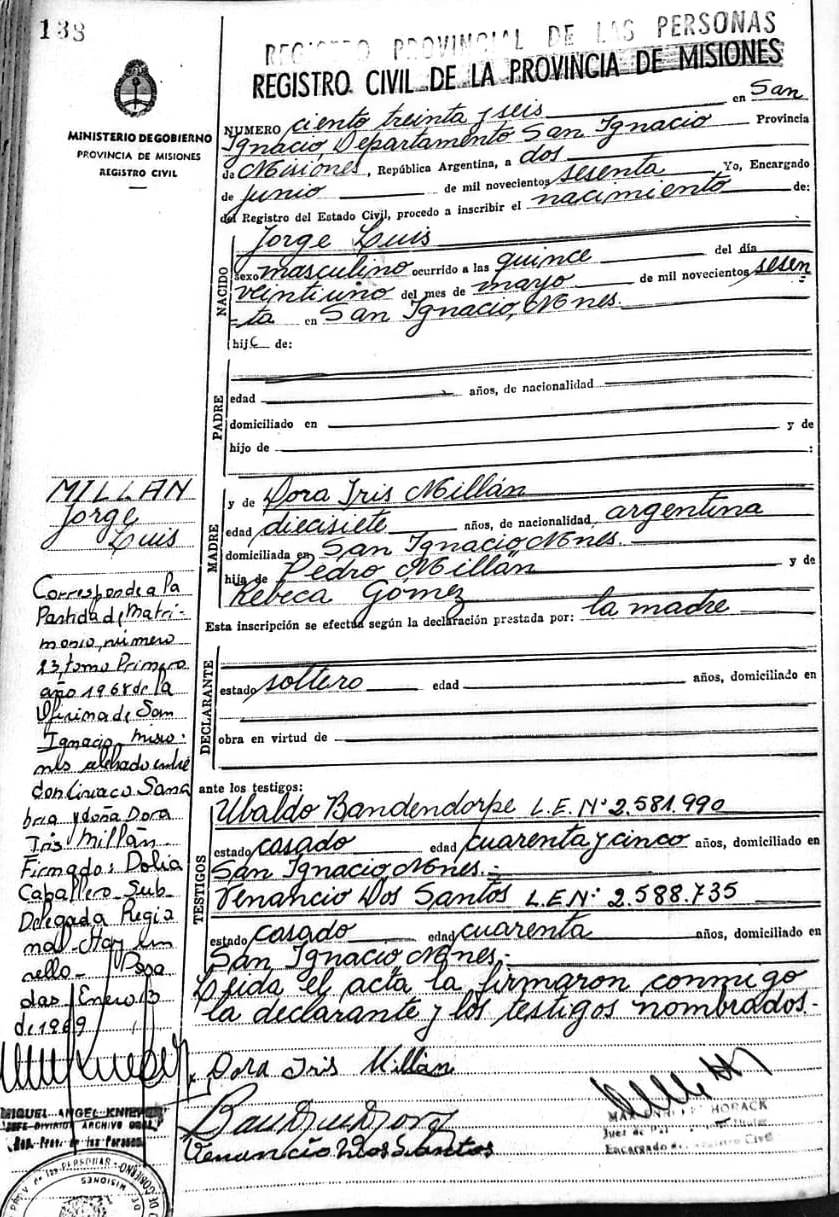 138
REGISTRO PROVINCIAL DE LAS PERSONAS
REGISTRO CIVIL DE LA PROVINCIA DE MISIONES
MINISTERIO DE GOBIERNO
PROVINCIA DE MISIONES
REGISTRO CIVIL
NUMERO ciento treinta y seis en San
Ignacio Departamento San Ignacio Provincia
de Misiones, República Argentina, a dos
de junio de mil novecientos sesenta Yo, Encargado
del Registro del Estado Civil, procedo a inscribir el nacimiento de:
NACIDO
Jorge Luis
sexo masculino ocurrido a las quince del día
veintiuno del mes de mayo de mil novecientos sesen
ta en San Ignacio, Mnes.
hijo de:
PADRE
edad años, de nacionalidad
domiciliado en y de
hijo de :
MADRE
y de Dora Iris Millán
edad diecisiete años, de nacionalidad argentina
domiciliada en San Ignacio Mnes.
hija de Pedro Millán y de
Rebeca Gómez
Esta inscripción se efectúa según la declaración prestada por: la madre
DECLARANTE
estado soltero edad años, domiciliado en
obra en virtud de
ante los testigos:
TESTIGOS
Ubaldo Bandendorpe L.E. Nº 2.581.990
estado casado edad cuarenta y cinco años, domiciliado en
San Ignacio Mnes.-
Venancio Dos Santos L.E.Nº 2.588.735
estado casado edad cuarenta años, domiciliado en
San Ignacio Mnes.-
Leida el acta la firmaron conmigo
la declarante y los testigos nombrados.-
Dora Iris Millan
Venancio Dos Santos
HORACK
Juez de Paz
Encargado del Registro Civil
MILLAN
Jorge
Luis
Corresponde a la
Partida de Matri-
monio, número
23, tomo Primero
año 1968 de la
Oficina de San
Ignacio, Misio-
nes
don Ciriaco Sana
bria y doña Dora
Iris Millán
Firmado: Dolia
Caballero Sub-
Delegada Regio
nal - Hay un
sello - Posa
das, Enero 3
de 1969
MIGUEL ANGEL KNIEPER
JEFE DIVISION ARCHIVO GRAL.
Reg. Prov. de las Personas